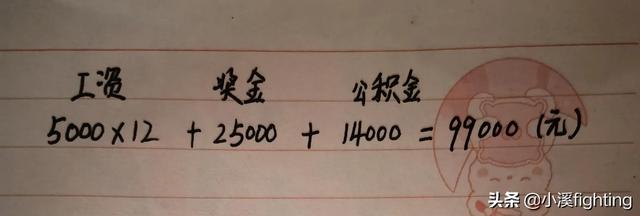 工资 奖金 公积金
5000×12 + 25000 + 14000 = 99000 (元)
头条 @小溪fighting